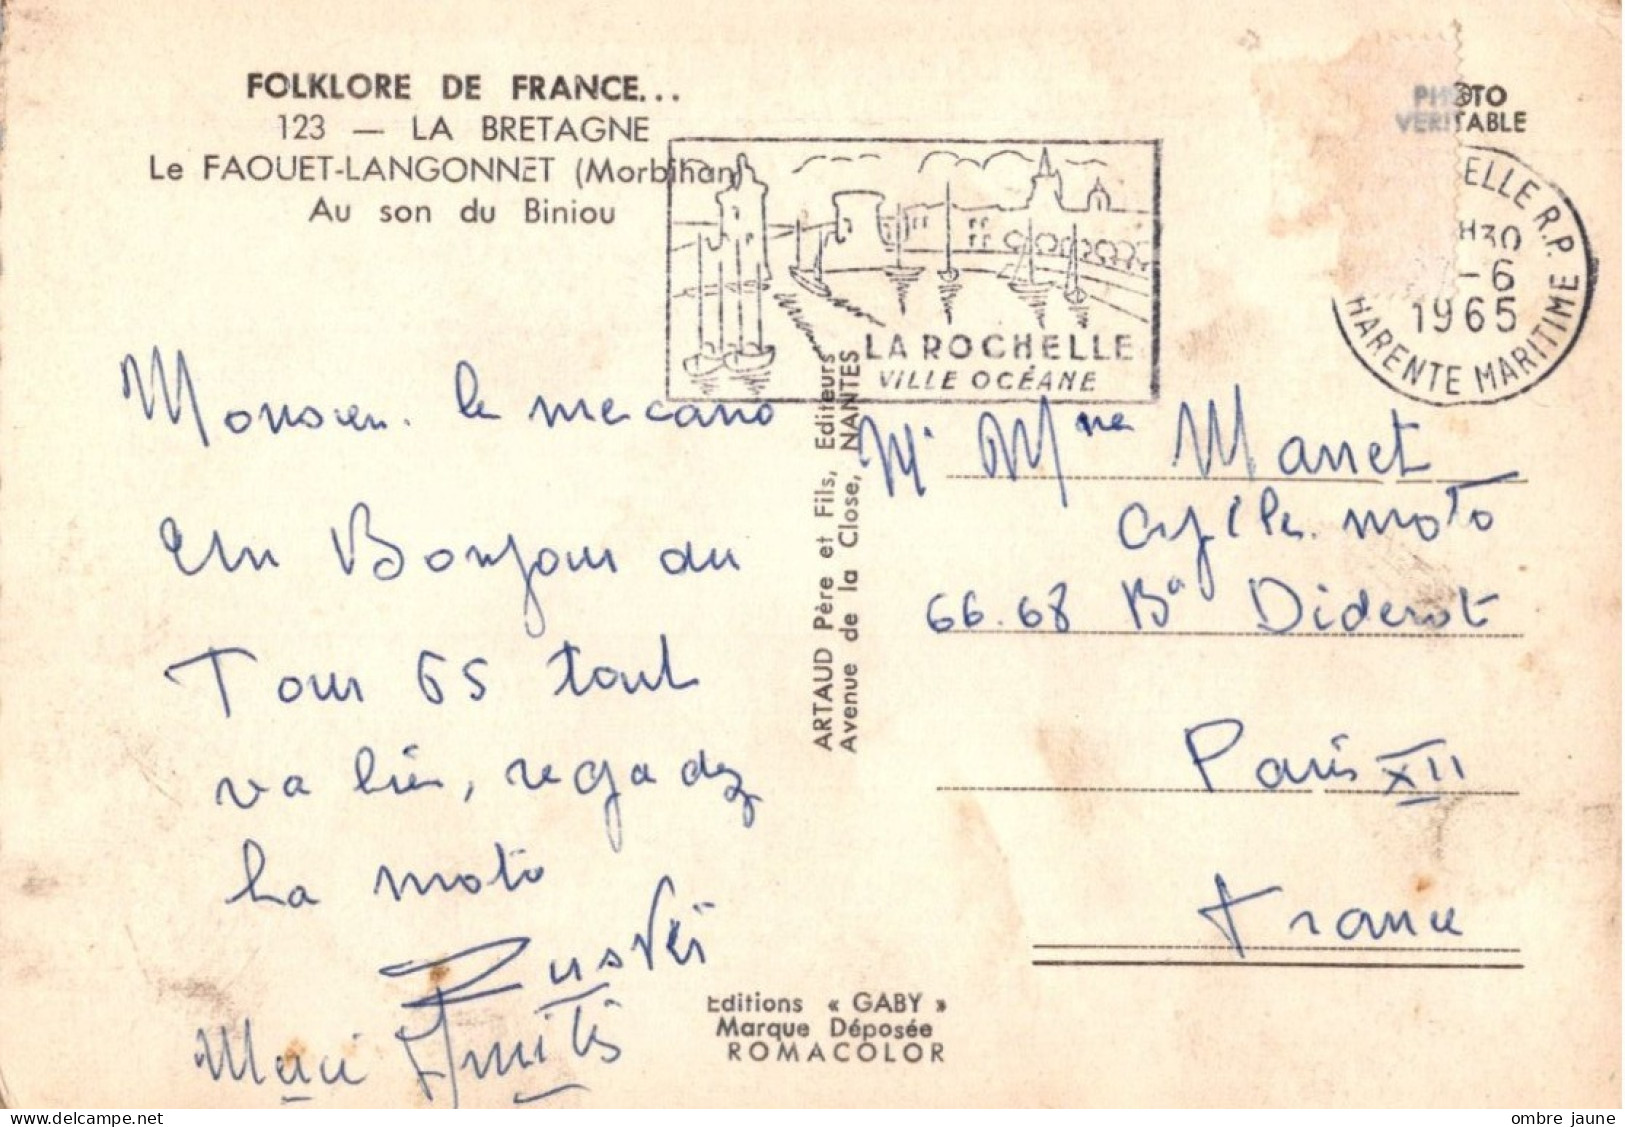 FOLKLORE DE FRANCE...
123 — LA BRETAGNE
Le FAOUET-LANGONNET (Morbihan)
Au son du Biniou
PHOTO
VERITABLE
ELLE R.P.
H30
-6
1965
HARENTE MARITIME
LA ROCHELLE
VILLE OCÉANE
Monsieur le mecano
Un Bonjour du
Tour 65 tout
va bien, regadez
la moto
Merci Amitis
ARTAUD Père et Fils, Editeurs
Avenue de la Close, NANTES
Mr Mme Manet
cycles moto
66.68 Bd Diderot
Paris XII
France
Editions « GABY »
Marque Déposée
ROMACOLOR
delcampe.net
ombre jaune